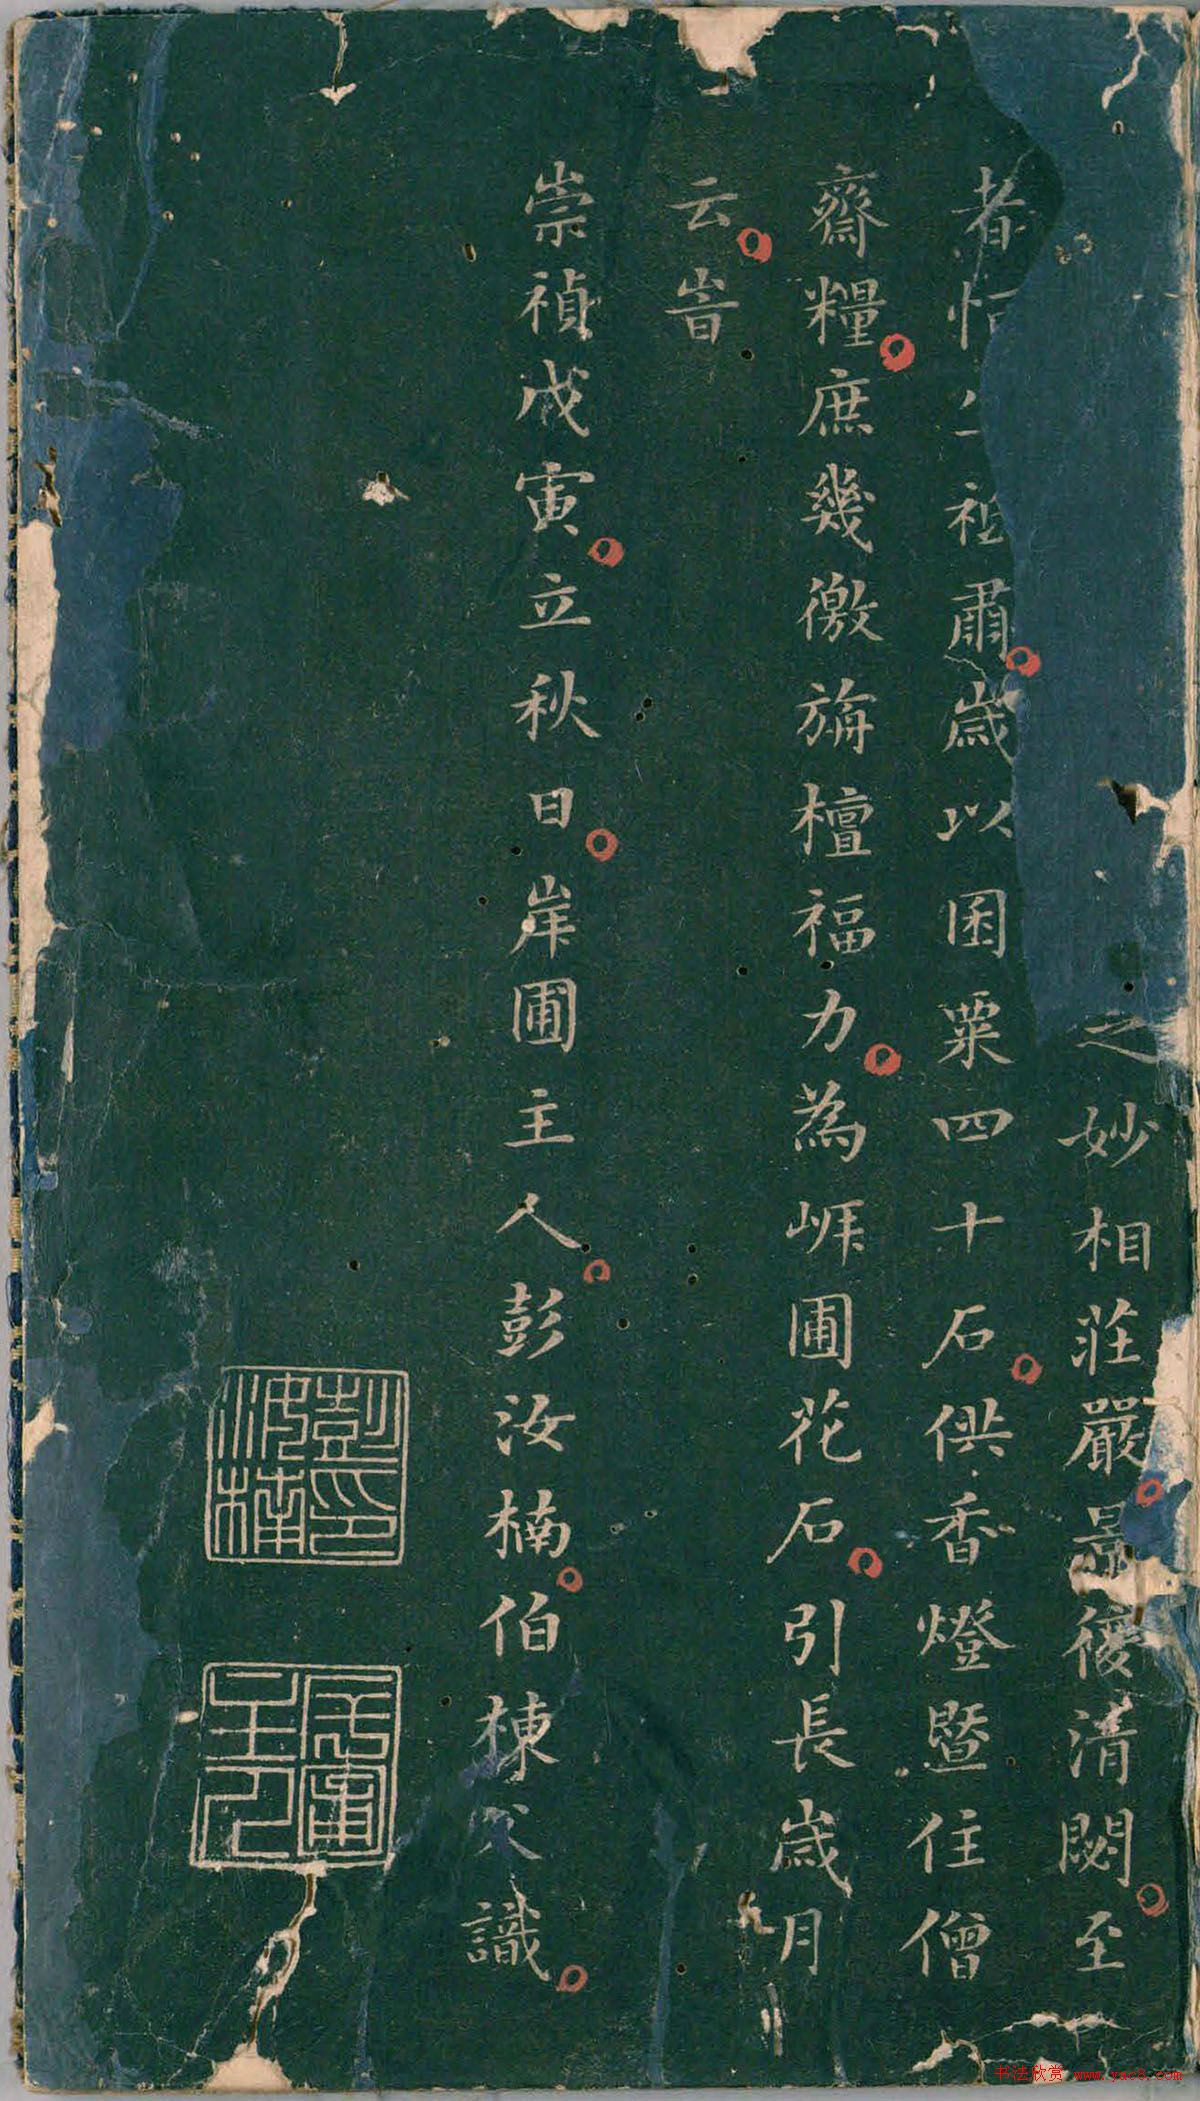 之妙相莊嚴景復清閟至
者恒祗肅歲以囷粟四十石供香燈暨住僧
齋糧庶幾徼旃檀福力為崕圃花石引長歲月
云旹
崇禎戊寅立秋日岸圃主人彭汝楠伯棟父識
彭印汝楠
書法欣赏 www.yac8.com